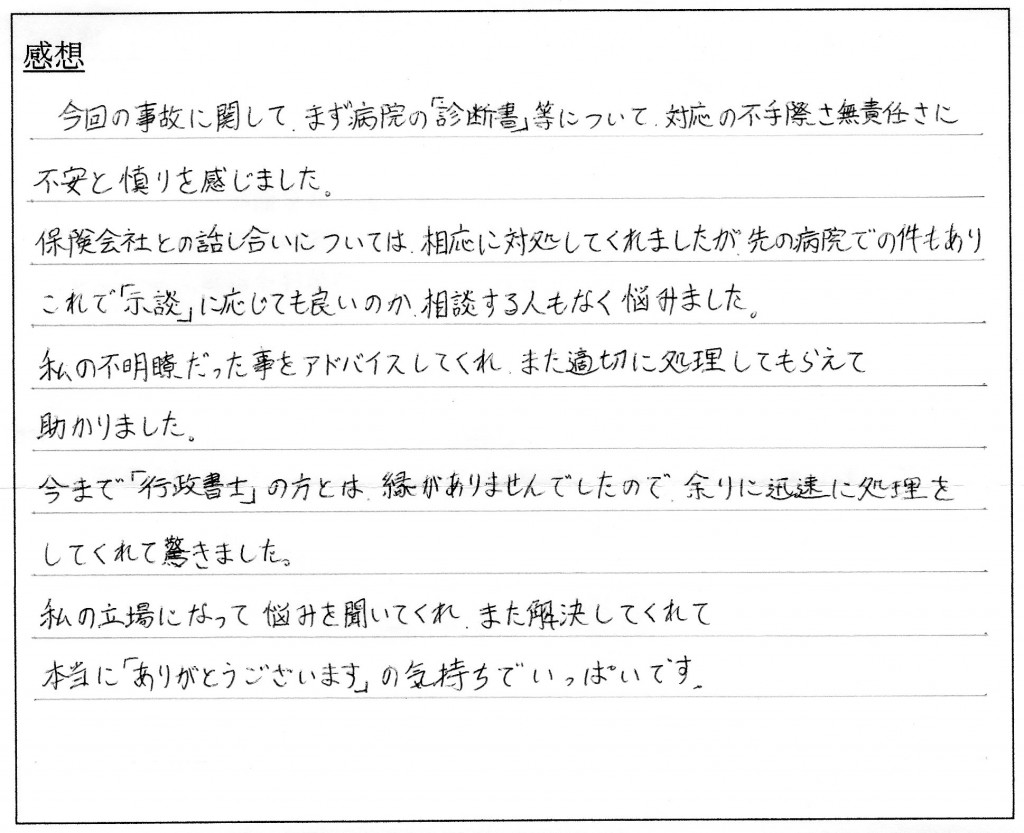 感想
今回の事故に関して、まず病院の「診断書」等について、対応の不手際さ無責任さに
不安と慎りを感じました。
保険会社との話し合いについては、相応に対処してくれましたが、先の病院での件もあり
これで「示談」に応じても良いのか、相談する人もなく悩みました。
私の不明瞭だった事をアドバイスしてくれ、また適切に処理してもらえて
助かりました。
今まで「行政書士」の方とは、縁がありませんでしたので、余りに迅速に処理を
してくれて驚きました。
私の立場になって悩みを聞いてくれ、また解決してくれて
本当に「ありがとうございます」の気持ちでいっぱいです。